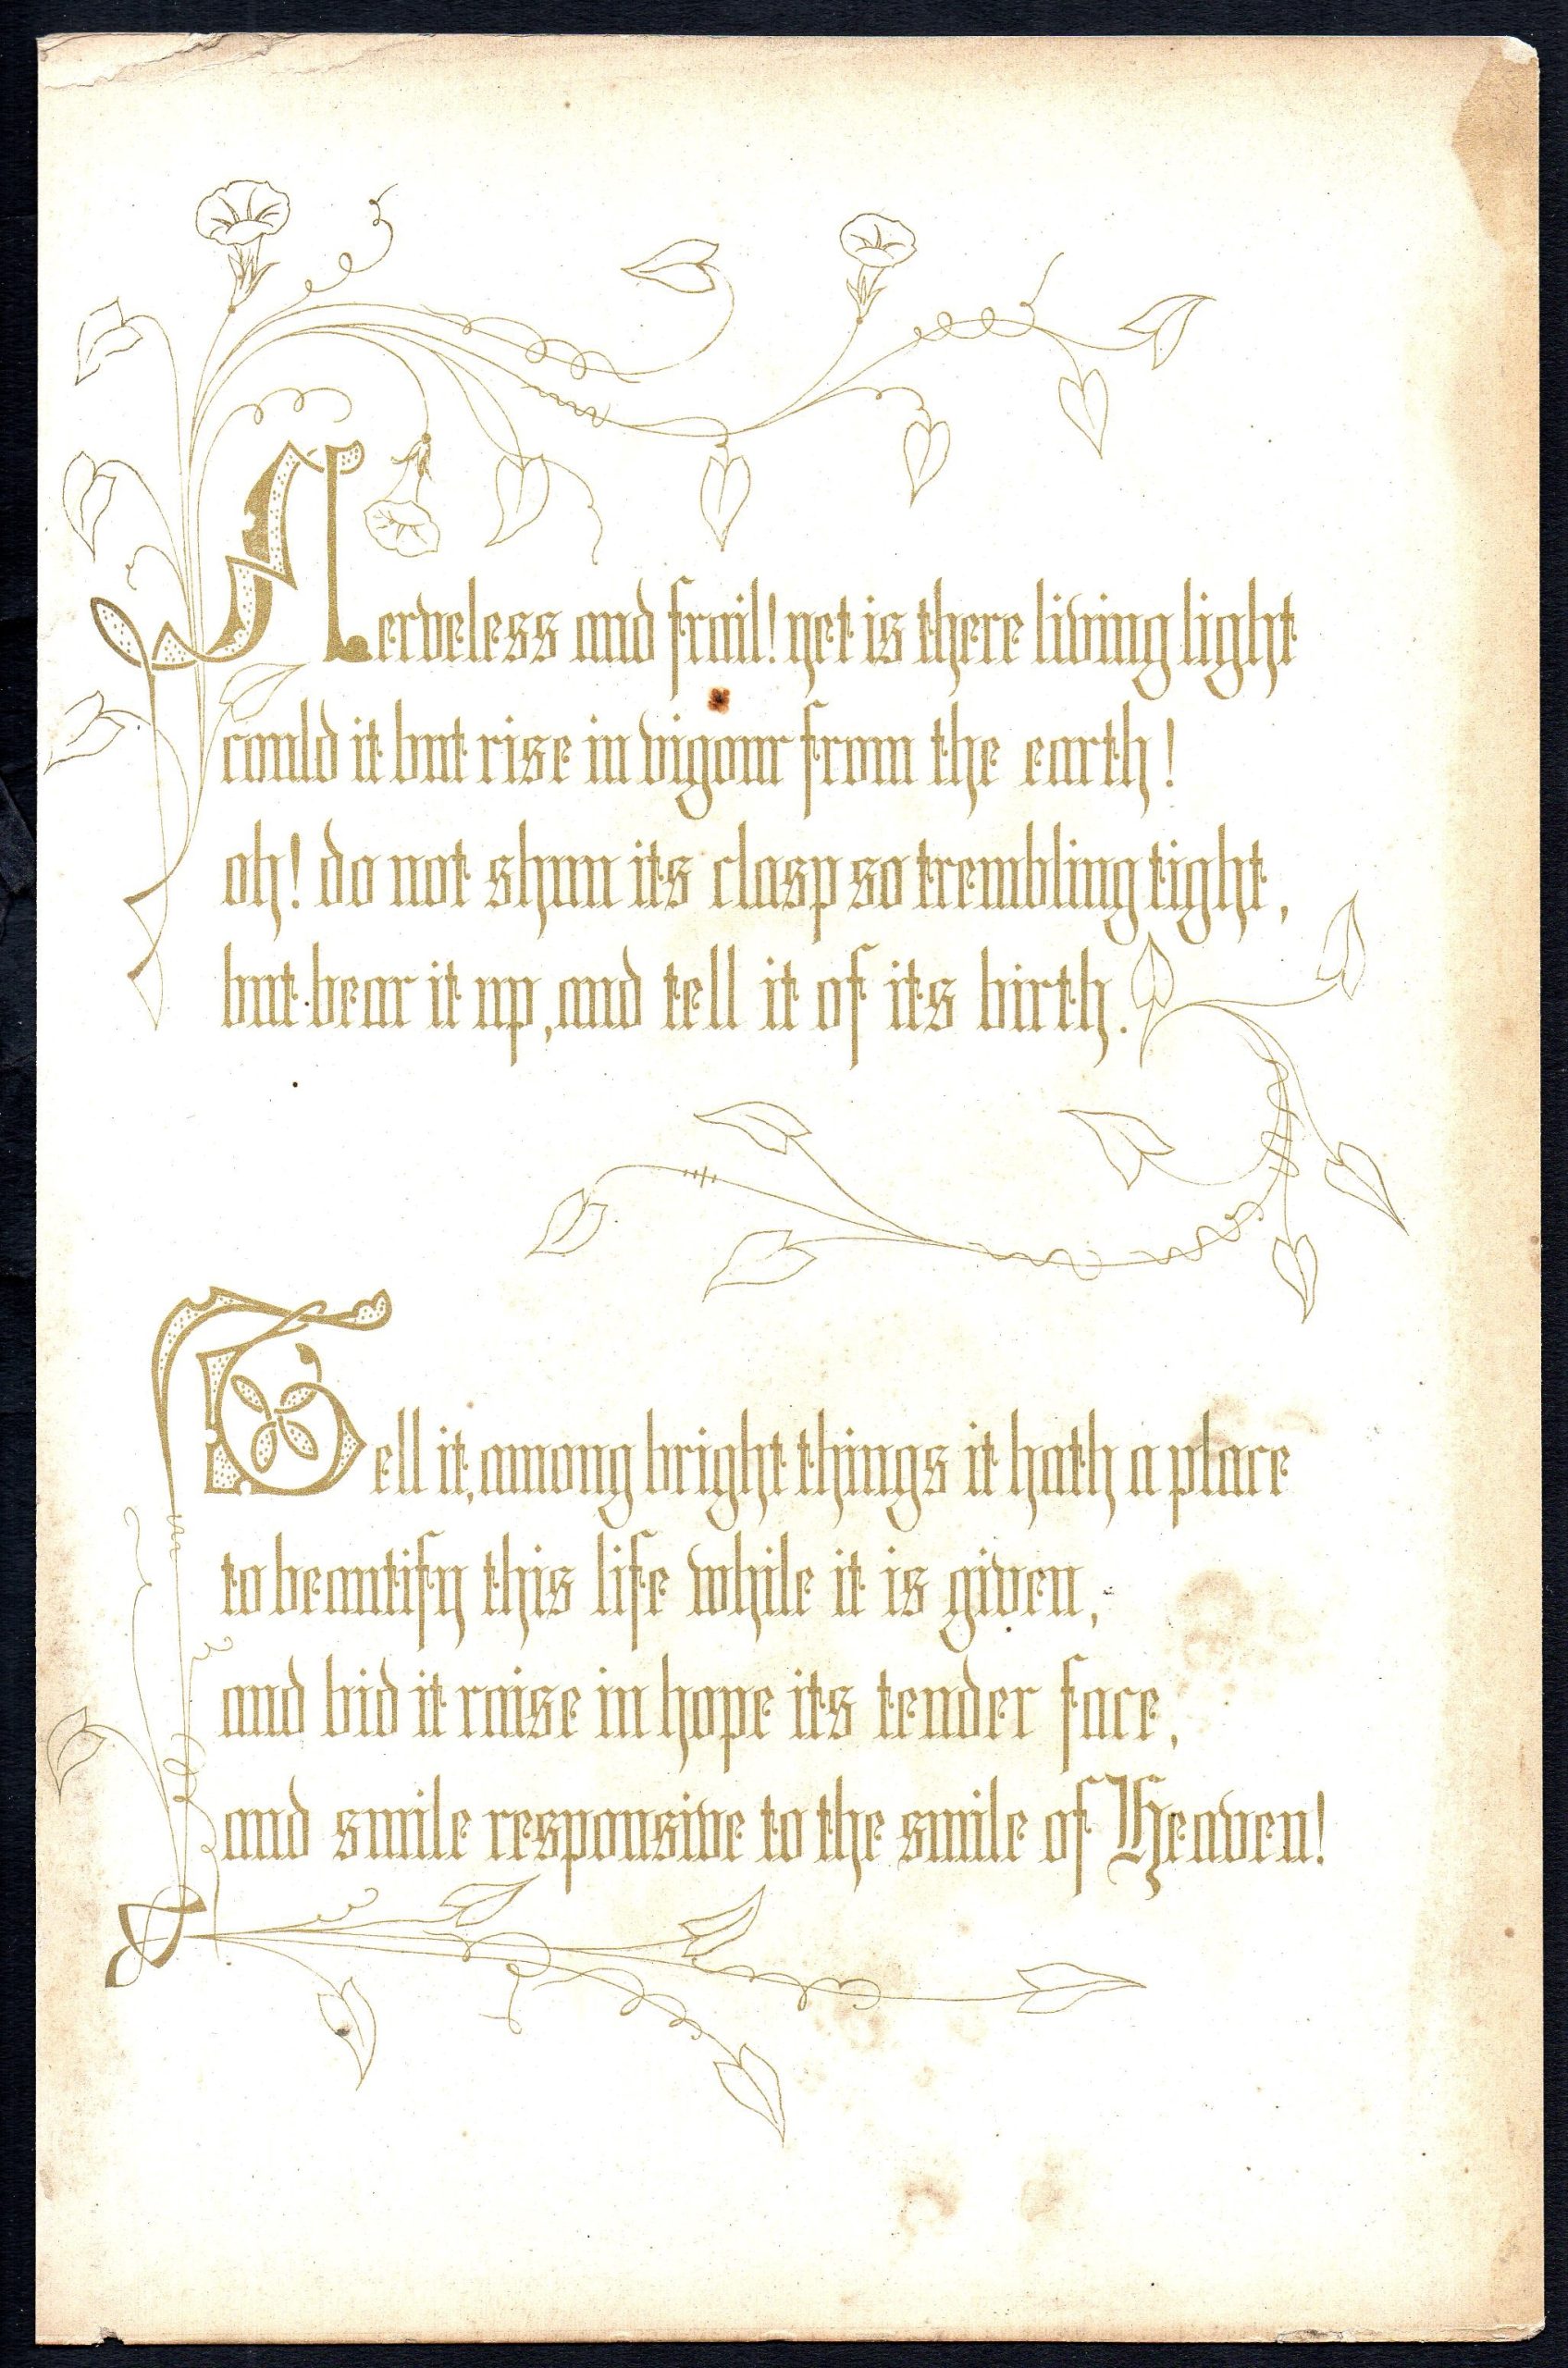 Nerveless and frail! yet is there living light
could it but rise in vigour from the earth!
oh! do not shun its clasp so trembling tight,
but bear it up, and tell it of its birth.
Tell it, among bright things it hath a place
to beautify this life while it is given,
and bid it raise in hope its tender face,
and smile responsive to the smile of Heaven!